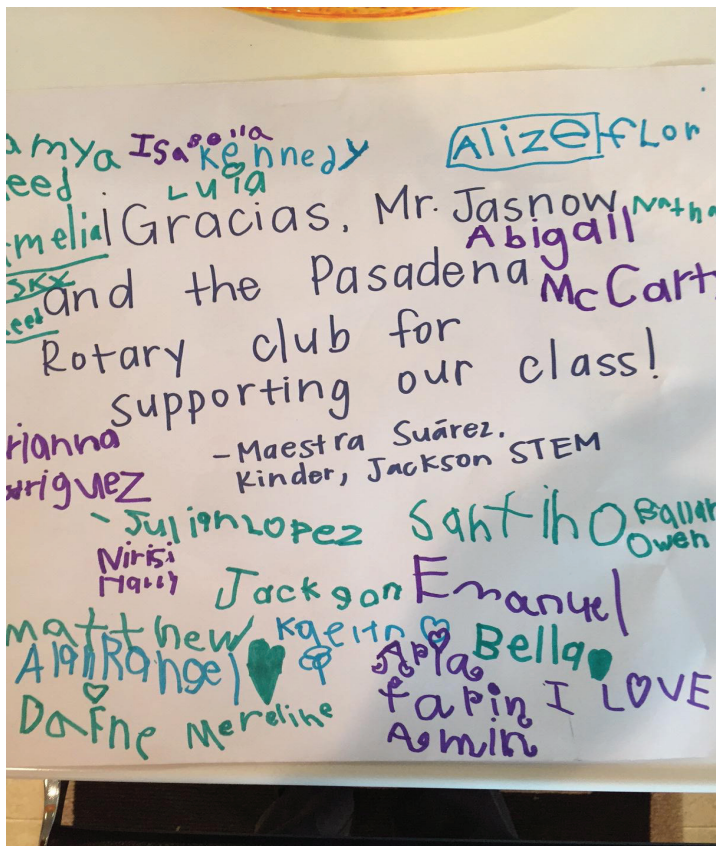 amya Isabella Kennedy Alize flor
eed Luia
melia Gracias, Mr. Jasnow Natha
Abigail
SKY and the Pasadena McCart
eed
Rotary club for
supporting our class!
rianna
riguez
-Maestra Suárez.
Kinder, Jackson STEM
Julian Lopez Santiho Ballar
Owen
Jackson Emanuel
matthew Kaeitn Bella
Alan Rangel
farin I LOVE
Dafne Mereline
Armin